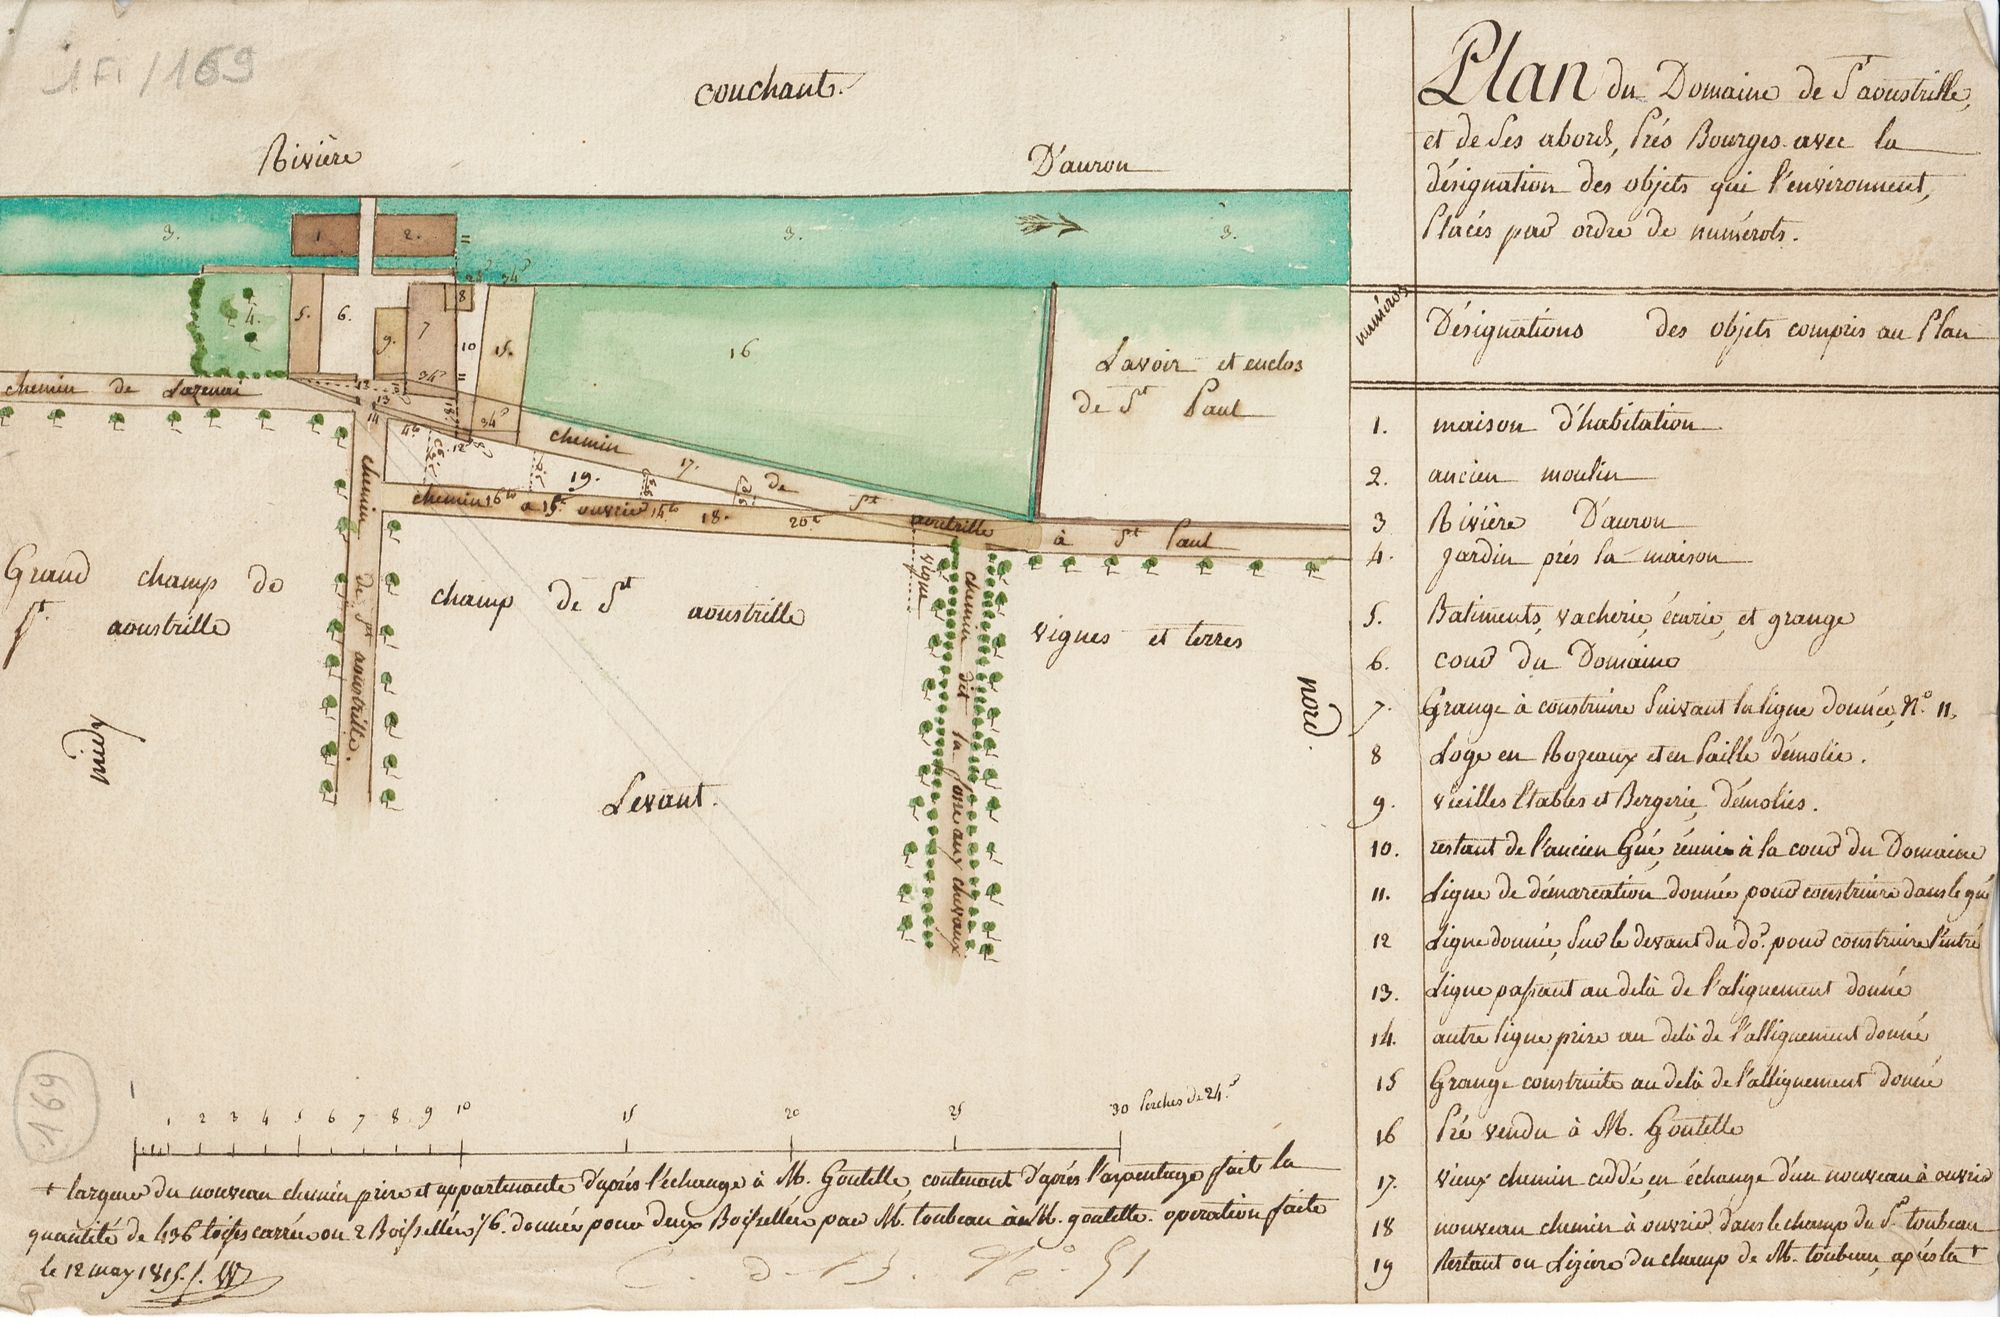 1 Fi / 169
couchant.
Rivière D'auron
3. 1 2. 3. 3.
4. 5. 6. 9. 7 8 10 15. 16
34P
Lavoir et enclos
de St Paul
chemin de Lazenai
12 13 14
chemin 17. de St aoutrille à St Paul
19.
chemin à ouvrir 18.
Grand champ de
St. aoustrille
chemin de St aoustrille.
champ de St aoustrille
vigne
chemin dit la fosse aux chevaux
vignes et terres
midy
nord
Levant.
1 2 3 4 5 6 7 8 9 10 15 20 25 30 Perches de 24P
+ largeur du nouveau chemin prise et appartenante d'après l'échange à M. Goutelle, contenant d'après l'arpentage fait la
quantité de 436 toises carrée ou 2 Boissellée 1/6. donnée pour deux Boissellée par M. toubeau à M. goutelle. operation faite
le 12 may 1815.
169
Plan du Domaine de St aoustrille,
et de Ses abords, Prés Bourges avec la
désignation des objets qui l'environnent,
Placés par ordre de numérots.
numéros Désignations des objets compris au Plan
1. maison d'habitation
2. ancien moulin
3 Rivière D'auron
4. jardin prés la maison
5. Batiments, vacherie, écurie, et grange
6. cour du Domaine
7. Grange à construire Suivant la ligne donnée, No. 11.
8 Loge en Rozeaux et en Paille démolie.
9. vieilles Etables et Bergerie, démolies.
10. restant de l'ancien Gué, réunie à la cour du Domaine
11. Ligne de démarcation donnée pour construire dans le gué
12 Ligne donnée, Sur le devant du do. pour construire l'entré
13. Ligne passant au delà de l'alignement donné
14. autre ligne prise au delà de l'allignement donné
15 Grange construite au delà de l'allignement donné
16 Pré vendu à M. Goutelle
17. vieux chemin cédé, en échange d'un nouveau à ouvrir
18 nouveau chemin à ouvrir dans le champ du Sr toubeau
19 Restant ou Liziere du champ de M. toubeau, après la +